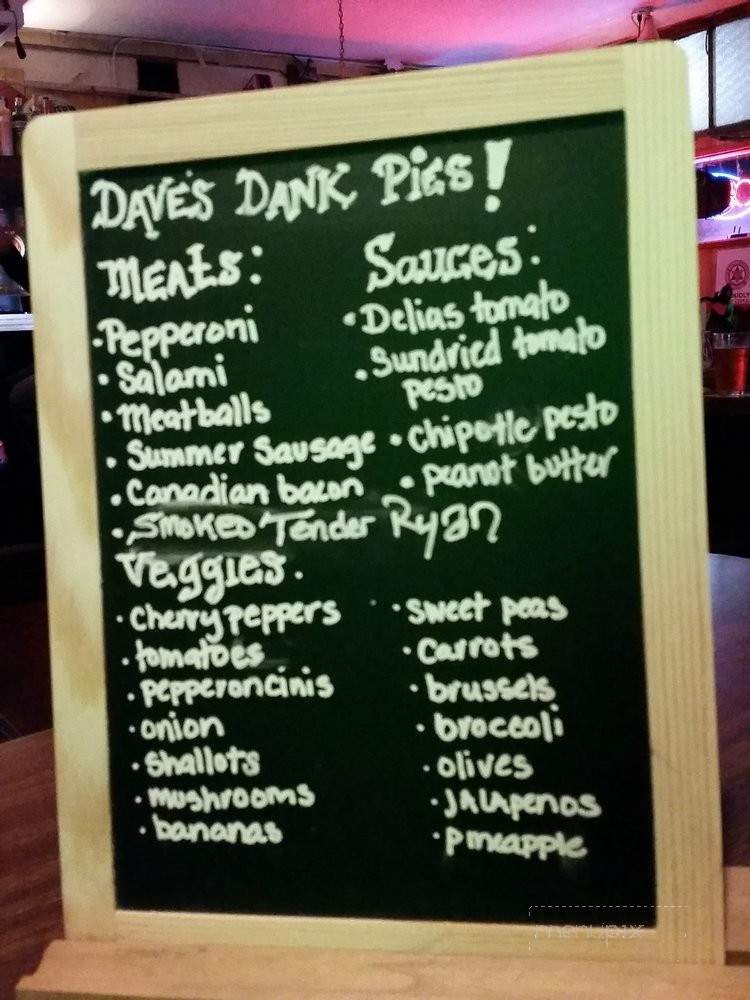 DAVE'S DANK PIES!
MEATS:
• Pepperoni
• Salami
• Meatballs
• Summer Sausage
• Canadian bacon
• Smoked Tender Ryan
Sauces:
• Delias tomato
• Sundried tomato
pesto
• Chipotle pesto
• peanut butter
Veggies.
• cherry peppers
• tomatoes
• pepperoncinis
• onion
• shallots
• mushrooms
• bananas
• sweet peas
• carrots
• brussels
• broccoli
• olives
• JALApenos
• pineapple
menupix